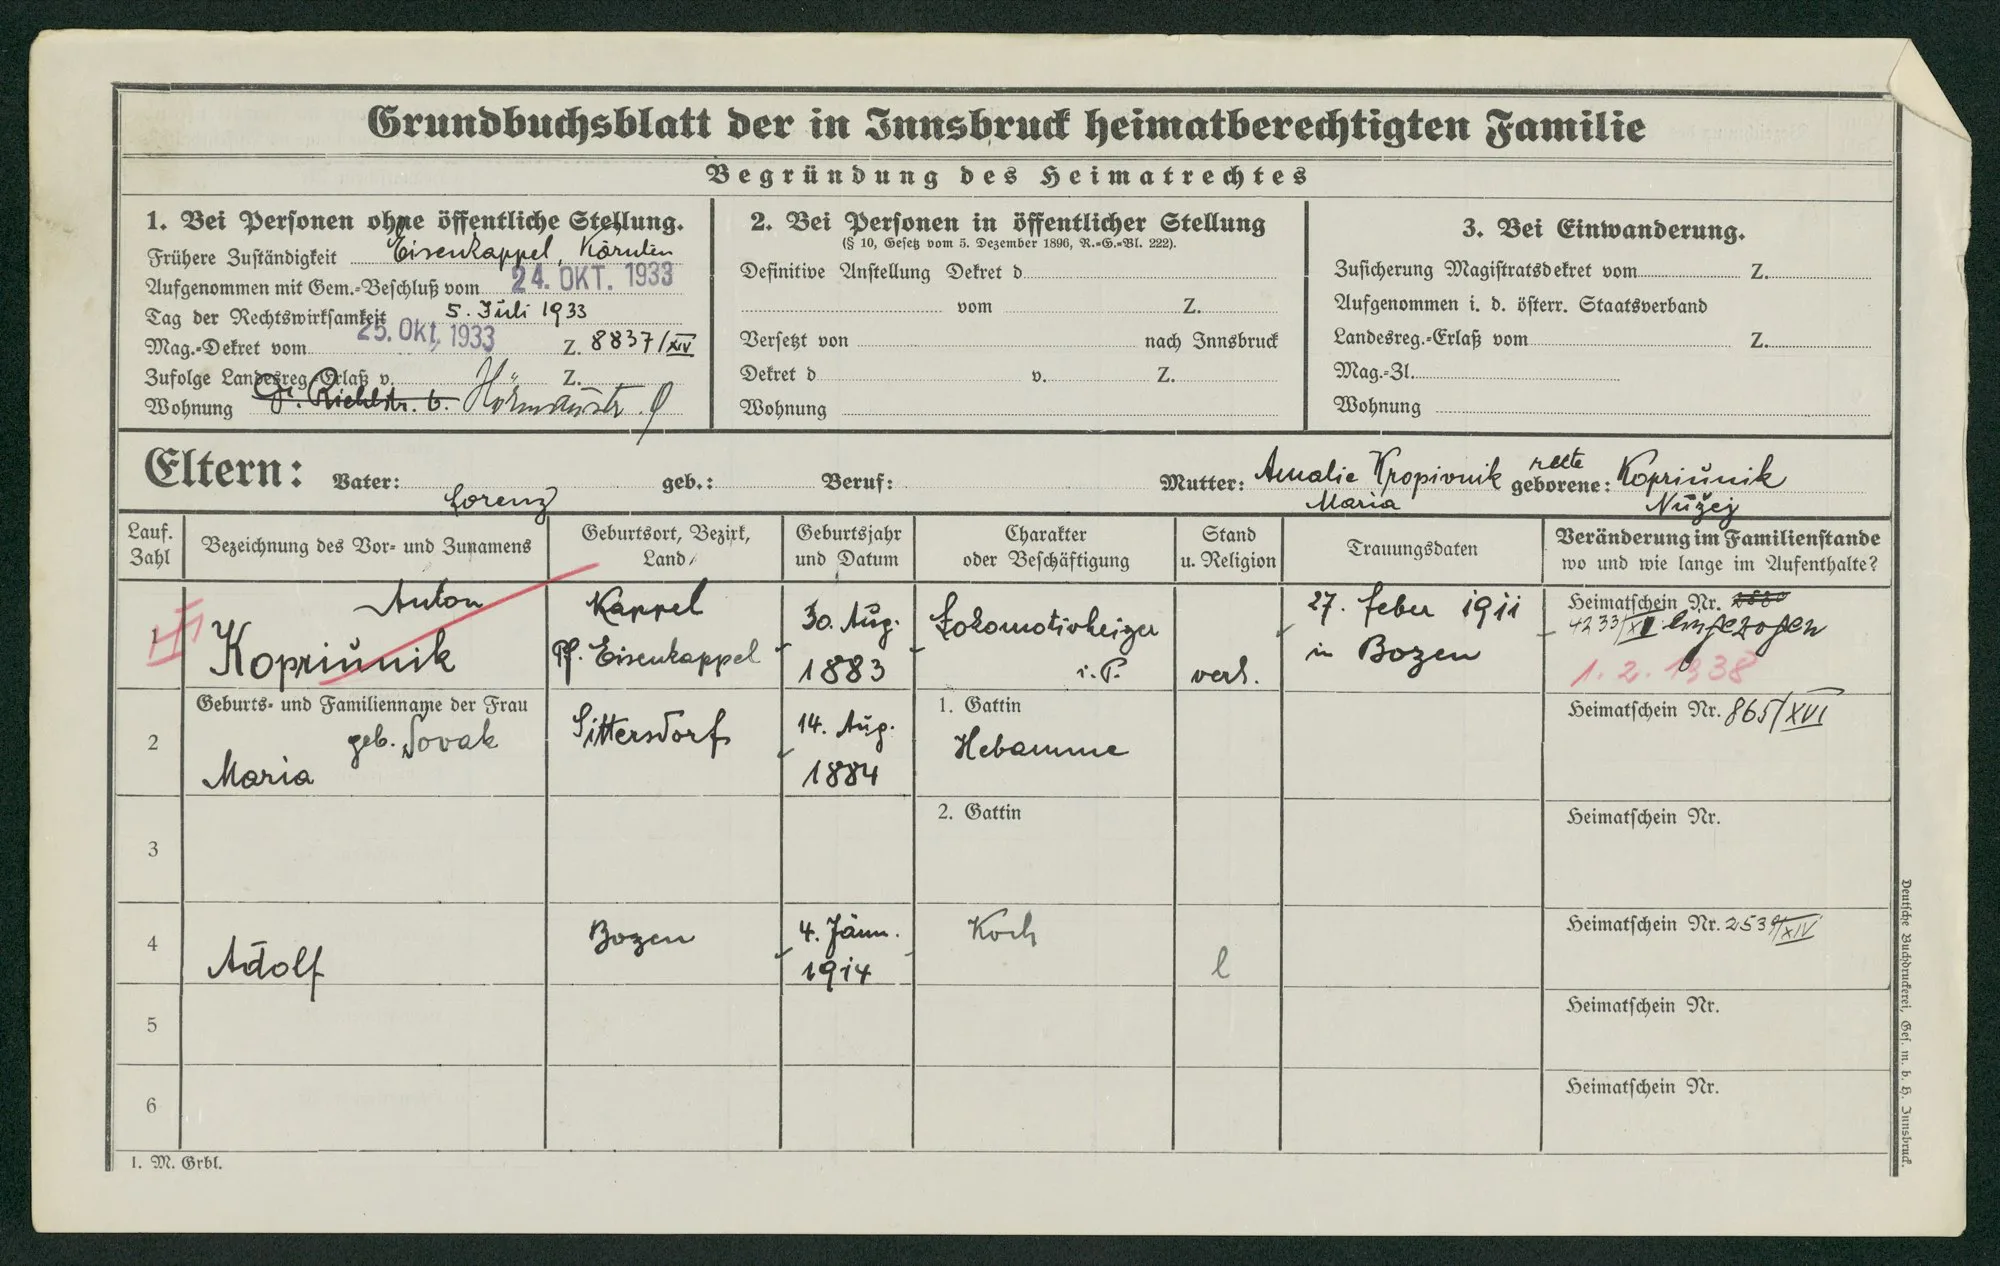 Grundbuchsblatt der in Innsbruck heimatberechtigten Familie
Begründung des Heimatrechtes
1. Bei Personen ohne öffentliche Stellung.
Frühere Zuständigkeit Eisenkappel, Kärnten
Aufgenommen mit Gem.-Beschluß vom 24. OKT. 1933
Tag der Rechtswirksamkeit 5. Juli 1933
Mag.-Dekret vom 25. Okt. 1933 Z. 8837/XIV
Zufolge Landesreg.-Erlaß v. Z.
Wohnung Gr. Riehlstr. 6. Hörmannstr. 9
2. Bei Personen in öffentlicher Stellung
(§ 10, Gesetz vom 5. Dezember 1896, R.-G.-Bl. 222).
Definitive Anstellung Dekret d
vom Z.
Versetzt von nach Innsbruck
Dekret d v. Z.
Wohnung
3. Bei Einwanderung.
Zusicherung Magistratsdekret vom Z.
Aufgenommen i. d. österr. Staatsverband
Landesreg.-Erlaß vom Z.
Mag.-Zl.
Wohnung
Eltern: Vater: Lorenz geb.: Beruf: Mutter: Amalie Kropivnik recte geborene: Kopriunik
Maria Nužej
Lauf. Zahl
Bezeichnung des Vor- und Zunamens
Geburtsort, Bezirk, Land
Geburtsjahr und Datum
Charakter oder Beschäftigung
Stand u. Religion
Trauungsdaten
Veränderung im Familienstande
wo und wie lange im Aufenthalte?
1
Anton
Kopriunik
Kappel
Pf. Eisenkappel
30. Aug.
1883
Lokomotivheizer
i. P.
verh.
27. Feber 1911
in Bozen
Heimatschein Nr.
4233/XI eingezogen
1. 2. 1938
2
Geburts- und Familienname der Frau
geb. Novak
Maria
Sittersdorf
14. Aug.
1884
1. Gattin
Hebamme
Heimatschein Nr. 865/XVI
3
2. Gattin
Heimatschein Nr.
4
Adolf
Bozen
4. Jänn.
1914
Koch
l
Heimatschein Nr. 2539/XIV
5
Heimatschein Nr.
6
Heimatschein Nr.
1. M. Grbl.
Deutsche Buchdruckerei, Ges. m. b. H. Innsbruck.